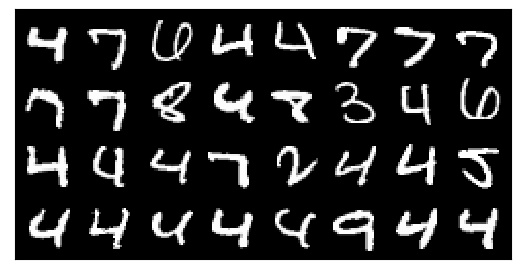 4 7 6 4 4 7 7 7
7 7 8 4 8 3 4 6
4 4 4 7 2 4 4 5
4 4 4 4 4 9 4 4